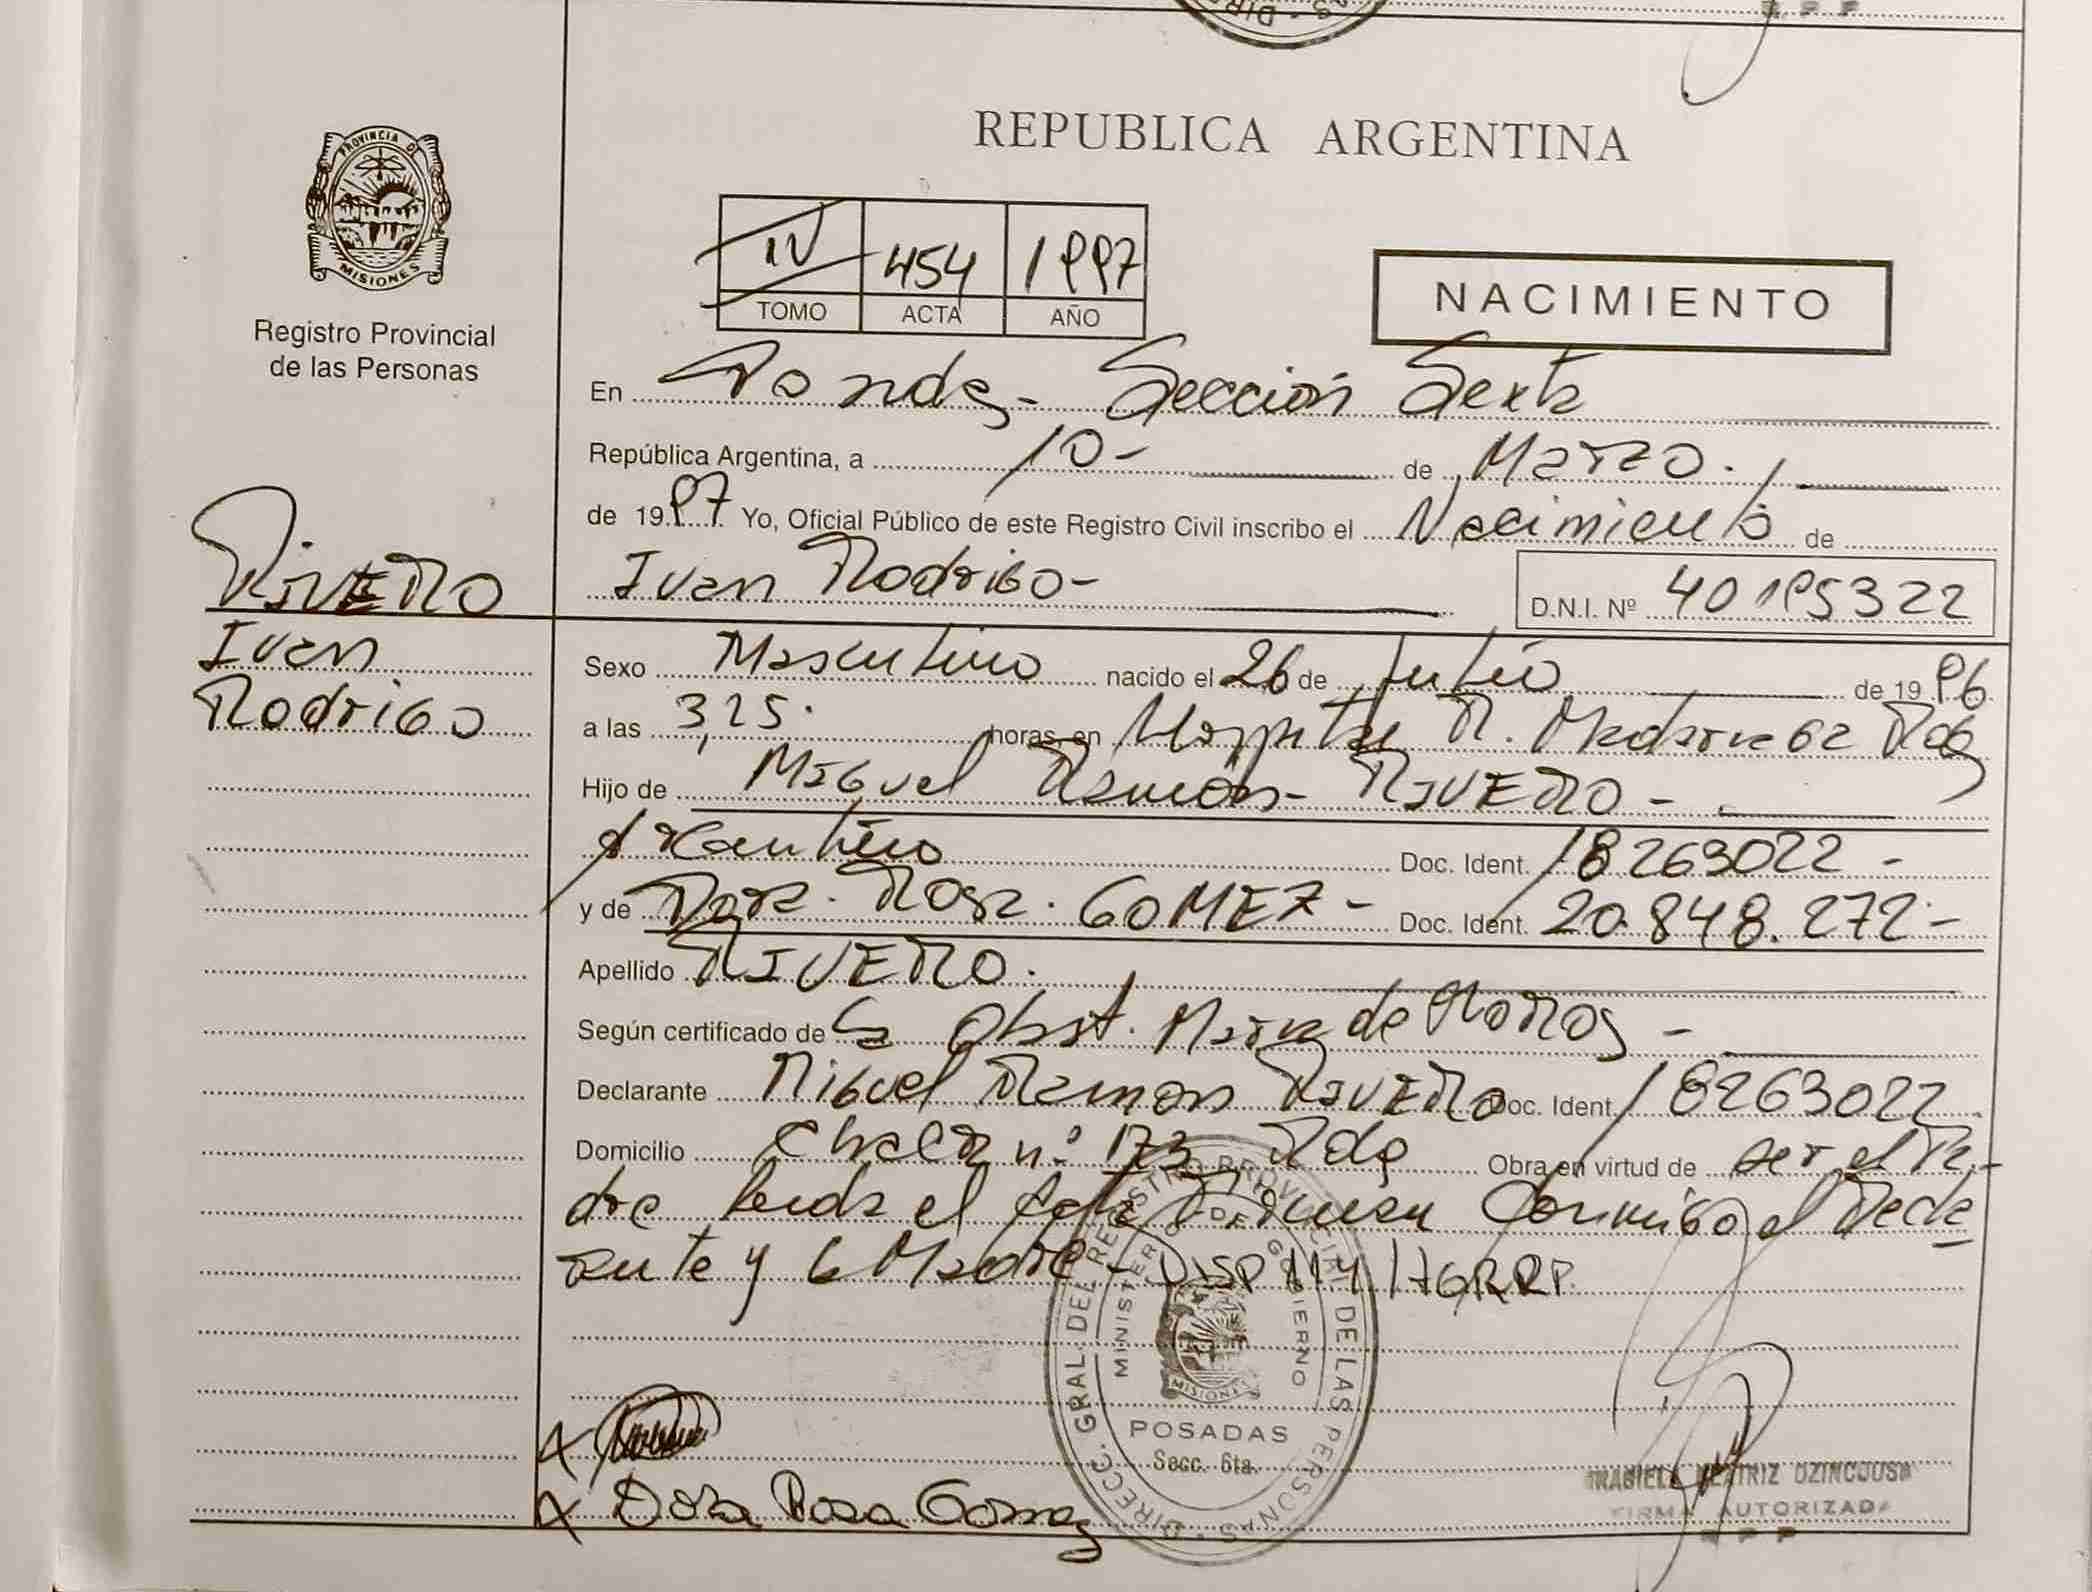 REPUBLICA ARGENTINA
PROVINCIA DE
MISIONES
Registro Provincial
de las Personas
IV 454 1997
TOMO ACTA AÑO
NACIMIENTO
En Posadas- Sección Sexta
República Argentina, a 10- de Marzo.
de 1997 Yo, Oficial Público de este Registro Civil inscribo el Nacimiento de
Ivan Rodrigo-
D.N.I. Nº 40195322
RIVERO
Ivan
Rodrigo
Sexo Masculino nacido el 26 de Julio de 1996.
a las 3,25. horas en Hospital R. Madariaga Pdas
Hijo de Miguel Ramón- RIVERO-
Argentino Doc. Ident. 18263022-
y de Dora. Rosa. GOMEZ- Doc. Ident. 20.848.272-
Apellido RIVERO.
Según certificado de la Obst. Maria de
Declarante Miguel Ramon RIVERO Doc. Ident. 18263022
Domicilio Chacra nº 173 Pdas Obra en virtud de ser el Pa-
dre leida el Acta Firman Conmigo el Decla
rante y la Madre- DISP 114 /
Dora Rosa Gomez
DIRECC. GRAL. DEL REGISTRO PROVINCIAL DE LAS PERSONAS
MINISTERIO DE GOBIERNO
MISIONES
POSADAS
Secc. 6ta.
FIRMA AUTORIZADA